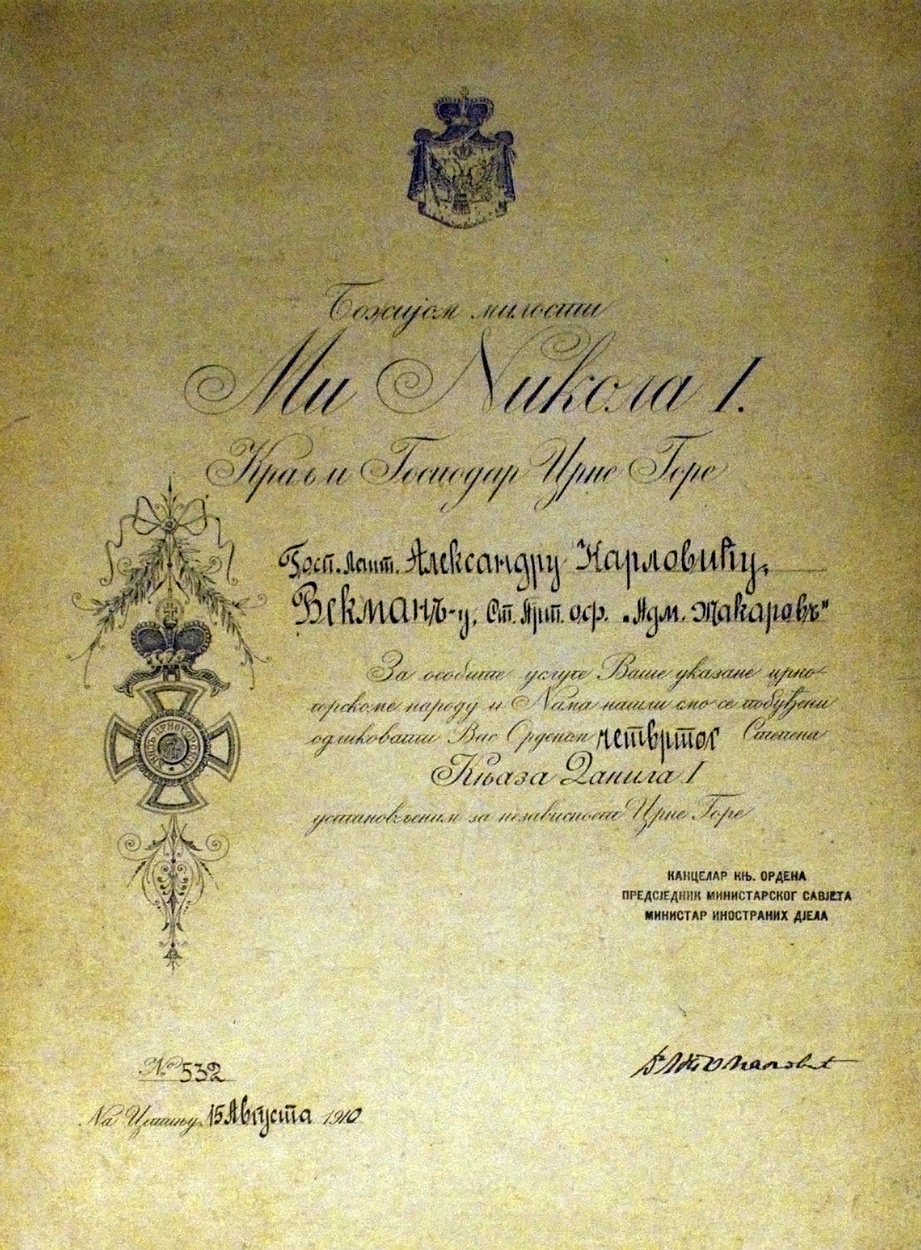 Божијом милости
Ми Никола I.
Краљ и Господар Црне Горе
Госп. Лаит. Александру Карловићу,
Векманъ-у, Ст. Арт. оф. „Адм. Макаровъ“
За особите услуге Ваше указане црно-
горскоме народу и Нама нашли смо се побуђени
одликовати Вас Орденом четвртог Степена
Књаза Данила I
установљеним за независност Црне Горе
КАНЦЕЛАР КЊ. ОРДЕНА
ПРЕДСЈЕДНИК МИНИСТАРСКОГ САВЈЕТА
МИНИСТАР ИНОСТРАНИХ ДЈЕЛА
№ 532
На Цетињу, 15 Августа 1910